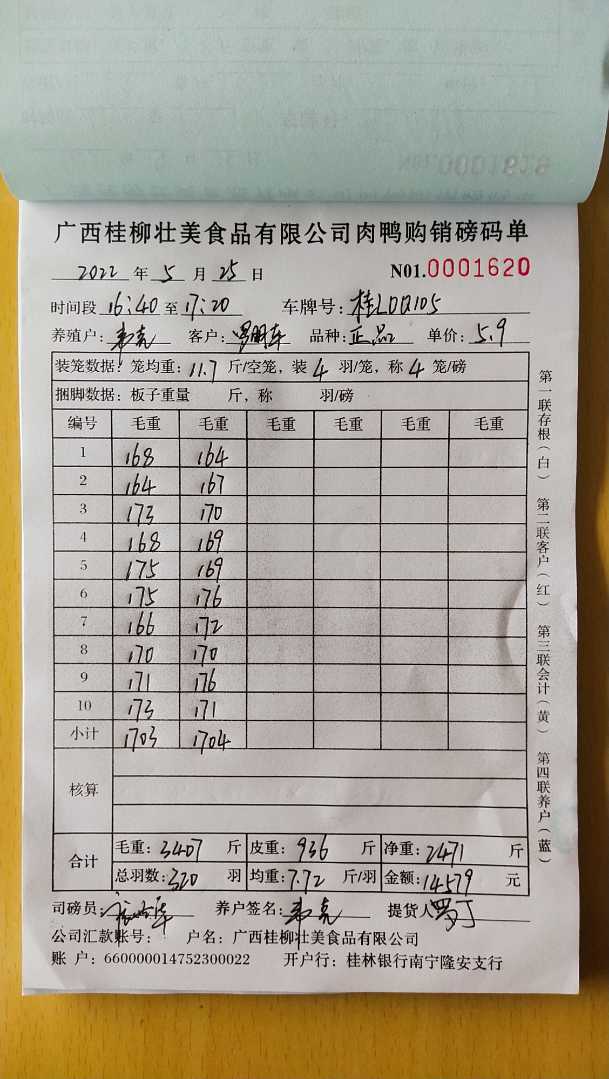 广西桂柳壮美食品有限公司肉鸭购销磅码单
2022 年 5 月 25 日 N01.0001620
时间段 16:40 至 17:20 车牌号: 桂LDQ105
养殖户: 韦克 客户: 品种: 正品 单价: 5.9
装笼数据: 笼均重: 11.7 斤/空笼, 装 4 羽/笼, 称 4 笼/磅
捆脚数据: 板子重量 斤, 称 羽/磅
编号 毛重 毛重 毛重 毛重 毛重 毛重
1 168 164
2 164 167
3 173 170
4 168 169
5 175 169
6 175 176
7 166 172
8 170 170
9 171 176
10 173 171
小计 1703 1704
核算
合计 毛重: 3407 斤 皮重: 936 斤 净重: 2471 斤
总羽数: 320 羽 均重: 7.72 斤/羽 金额: 14579 元
司磅员: 养户签名: 韦克 提货人 罗丁
公司汇款账号: 户名: 广西桂柳壮美食品有限公司
账 户: 660000014752300022 开户行: 桂林银行南宁隆安支行
第一联存根(白) 第二联客户(红) 第三联会计(黄) 第四联养户(蓝)